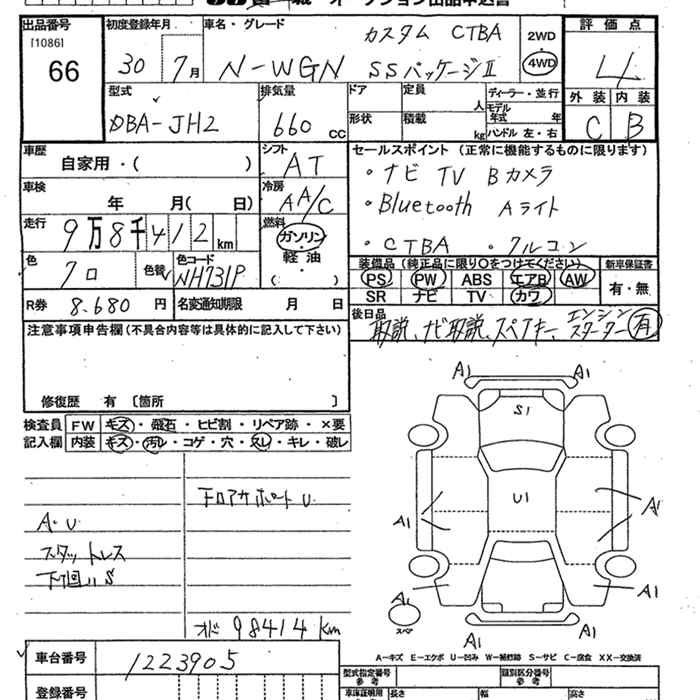 出品番号
[1086]
66
初度登録年月
30 7月
車名・グレード
カスタム CTBA
N-WGN SSパッケージⅡ
2WD
・
4WD
評価点
4
外装 内装
C B
型式
DBA-JH2
排気量
660 cc
ドア
形状
定員
人
積載
kg
ディーラー・並行
モデル
年式 年
ハンドル 左・右
車歴
自家用・( )
シフト
AT
車検
年 月( 日)
冷房
AA/C
走行
9万8千412km
燃料
ガソリン
軽油
( )
色
クロ
色替
色コード
NH731P
R券 8.680 円
名変通知期限 月 日
セールスポイント (正常に機能するものに限ります)
・ナビ TV Bカメラ
・Bluetooth Aライト
・CTBA ・クルコン
装備品 (純正品に限り○をつけてください)
PS PW ABS エアB AW
SR ナビ TV カワ
新車保証書
有・無
後日品
取説、ナビ取説、スペアキー、エンジンスターター 有
注意事項申告欄(不具合内容等は具体的に記入して下さい)
修復歴 有 [箇所 ]
検査員
記入欄
FW キズ・飛石・ヒビ割・リペア跡・×要
内装 キズ・汚レ・コゲ・穴・スレ・キレ・破レ
A・U
スタットレス
下回リS
オド 98414 km
A1 A1
S1
U1
A1 A1
A1 A1
A1 A1
スペア
A-キズ E-エクボ U-凹み W-補修跡 S-サビ C-腐食 XX-交換済
車台番号 1223905
登録番号
型式指定番号
参考
類別区分番号
参考
車庫証明用
長さ 幅 高さ